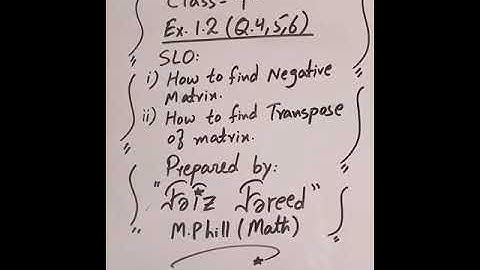 Class-
Ex. 1.2 (Q.4,5,6)
SLO:
i) How to find Negative
Matrix.
ii) How to find Transpose
of matrix.
Prepared by:
"Faiz Fareed"
M.Phill (Math)